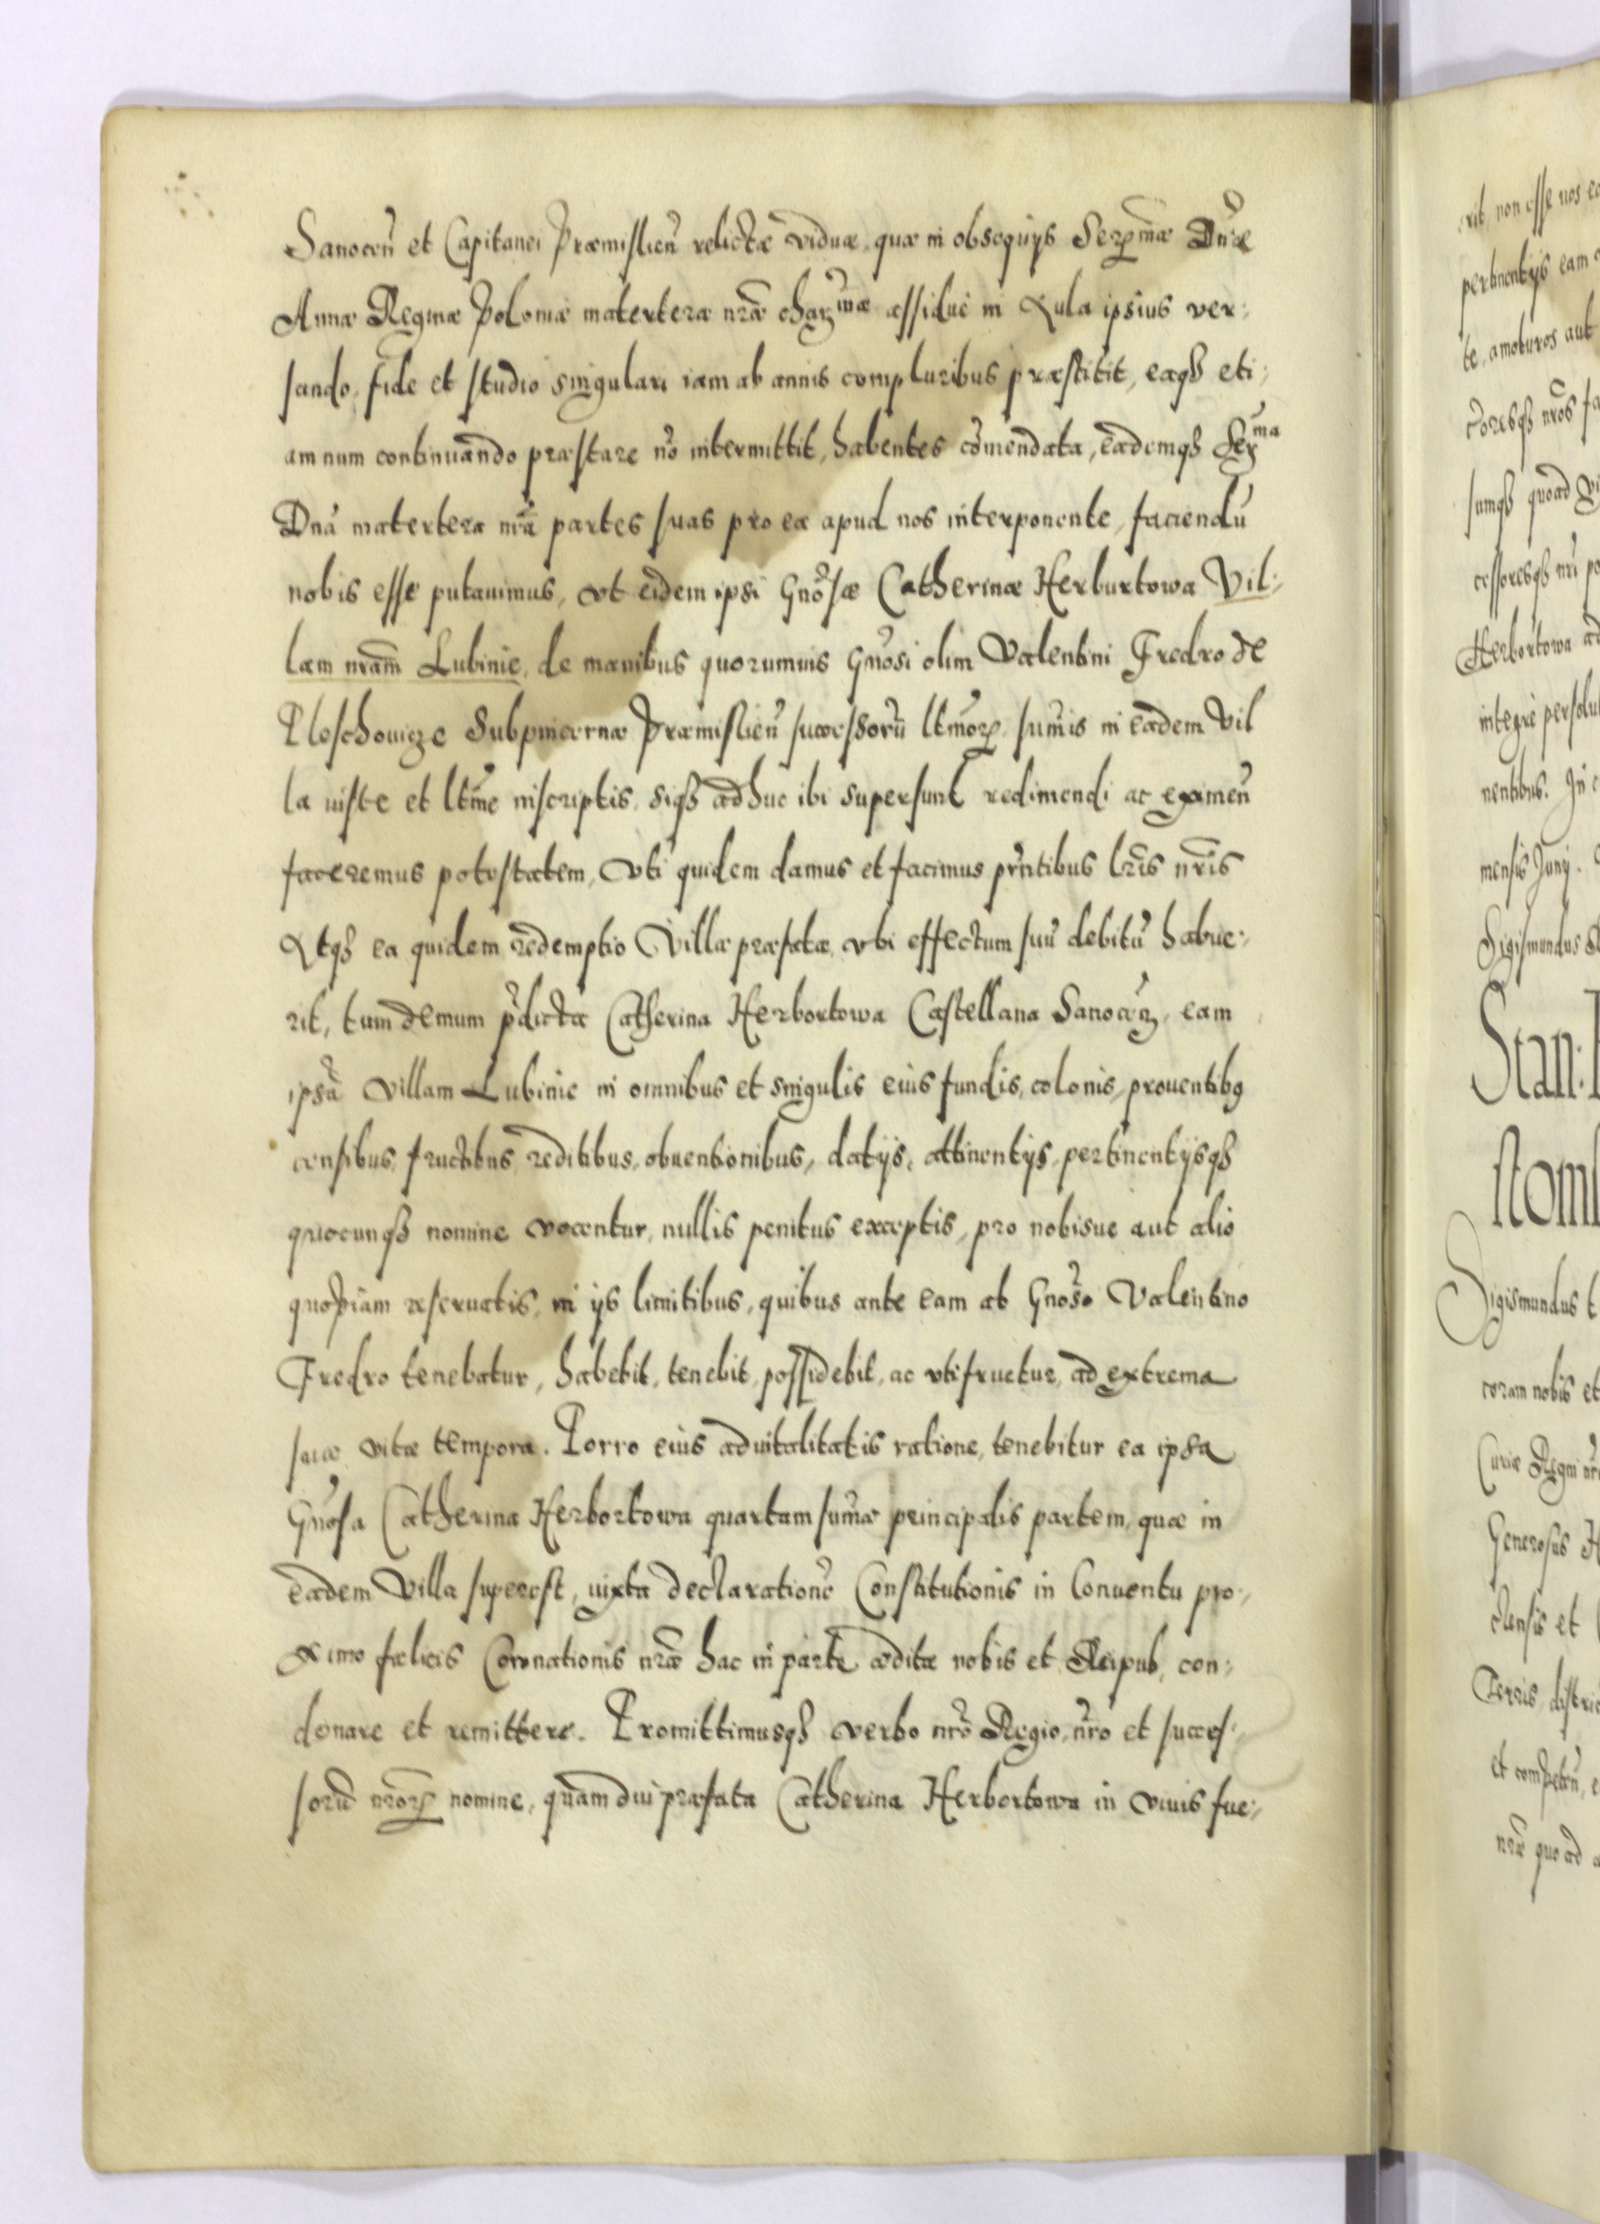 Sanoceñ et Capitanei Præmislieñ relictæ viduæ, quæ in obsequijs Serm̃æ Dñæ
Annæ Reginæ Poloniæ materteræ nr̃æ charmæ assiduè in Aula ipsius ver:
sando, fide et studio singulari iam ab annis compluribus præstitit, eaqȝ eti:
am num continuando præstare nõ intermittit, habentes cõmendata, eademqȝ Serma
Dnã matertera nr̃a partes suas pro ea apud nos interponente, faciendũ
nobis esse putauimus, vt eidem ipsi Gnõsæ Catherinæ Herburtowa Vil:
lam nram̃ Lubinie, de manibus quorumuis Gnõsi olim Valentini Fredro de
Pleschouicze Subpincernæ Præmislieñ successorũ ltm̃orꝝ sum̃is in eadem Vil
la iuste et ltm̃e inscriptis, siqȝ adhuc ibi supersunt redimendi ac eximeñ
faceremus potestatem, Vti quidem damus et facimus prñtibus lr̃is nr̃is
Atqȝ ea quidem redemptio Villæ præfatæ, vbi effectum suũ debitũ habue:
rit, tum demum p̃dicta Catherina Herbortowa Castellana Sanoceñ, eam
ipsã villam Lubinie in omnibus et singulis eius fundis, colonis, prouentibꝰ
censibus, fructibus, redditibus, obuentionibus, datijs, attinentijs, pertinentijsqȝ
quocunqȝ nomine vocentur, nullis penitus exceptis, pro nobisue aut alio
quopiam reseruatis, in ijs limitibus, quibus ante eam ab Gnõso Valentino
Fredro tenebatur, habebit, tenebit, possidebit, ac vtifruetur, ad extrema
suæ vitæ tempora. Porro eius aduitalitatis ratione, tenebitur ea ipsa
Gnõsa Catherina Herbortowa quartam sum̃æ principalis partem, quæ in
eadem Villa superest, iuxta declarationẽ Constitutionis in Conuentu pro:
ximo fælicis Coronationis nr̃æ hac in parte æditæ nobis et Reipub, con:
donare et remittere. Promittimusqȝ verbo nr̃o Regio, nr̃o et succes:
sorũ nr̃orꝝ nomine, quamdiu præfata Catherina Herbortowa in viuis fue: